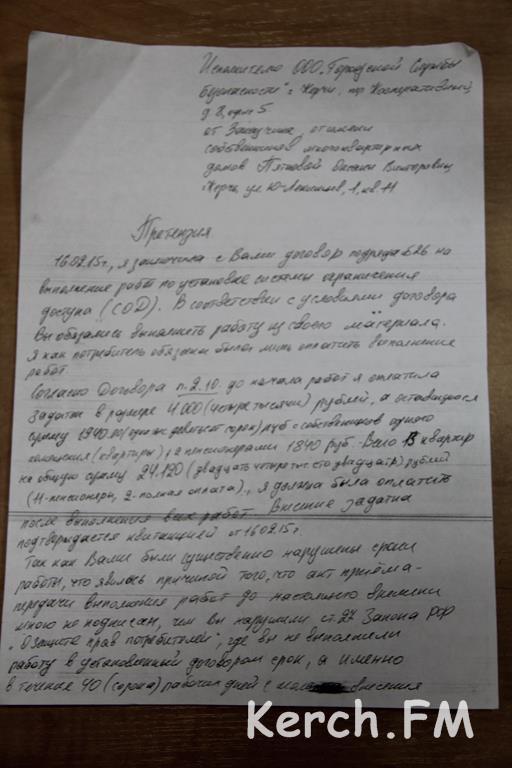 Исполнителю ООО „Городской Службы
Безопасности" г. Керчи, пр. Кооперативный,
д. 8, офис 5
от Заказчика, от имени
собственников многоквартирных
домов Пятковой Оксаны Викторовны
г. Керчь, ул. Ю-Ленинцев, 1, кв. 11
Претензия
16.02.15г., я заключила с Вами договор подряда №26 на
выполнение работ по установке системы ограничения
доступа (СОД). В соответствии с условиями договора
Вы обязались выполнить работу из своего материала.
Я как потребитель обязана была лишь оплатить выполнение
работ.
Согласно Договора п. 2.10. до начала работ я оплатила
задаток в размере 4.000 (четыре тысячи) рублей, а оставшуюся
сумму 1940 руб с собственников одного
помещения (квартиры), с пенсионерами 1840 руб. Всего 13 квартир
на общую сумму 24.120 (двадцать четыре тыс сто двадцать) рублей
(11-пенсионеры, 2-полная оплата), я должна была оплатить
после выполнения всех работ. Внесение задатка
подтверждается квитанцией от 16.02.15г.
Так как Вами были существенно нарушены сроки
работы, что явилось причиной того, что акт приёма-
передачи выполнения работ до настоящего времени
мною не подписан, чем вы нарушили ст. 27 Закона РФ
„О защите прав потребителей", где вы не выполнили
работу в установленный договором срок, а именно
в течение 40 (сорока) рабочих дней с внесения
Kerch.FM